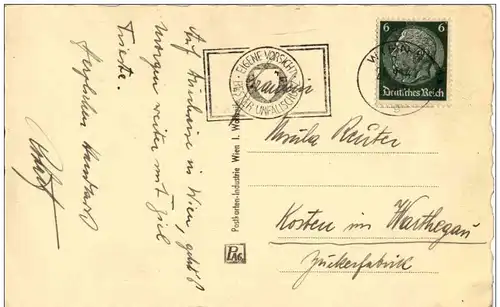 Auf Durchreise in Wien, geht's
morgen weiter mit Ziel
Trieste.
Herzlichen Handkuss
EIGENE VORSICHT
DER BESTE UNFALLSCHUTZ
Postkarten-Industrie Wien I. 
PAG
6 6
Deutsches Reich
WIEN
Fräulein
Ursula Reuter
Kosten im Warthegau
Zuckerfabrik